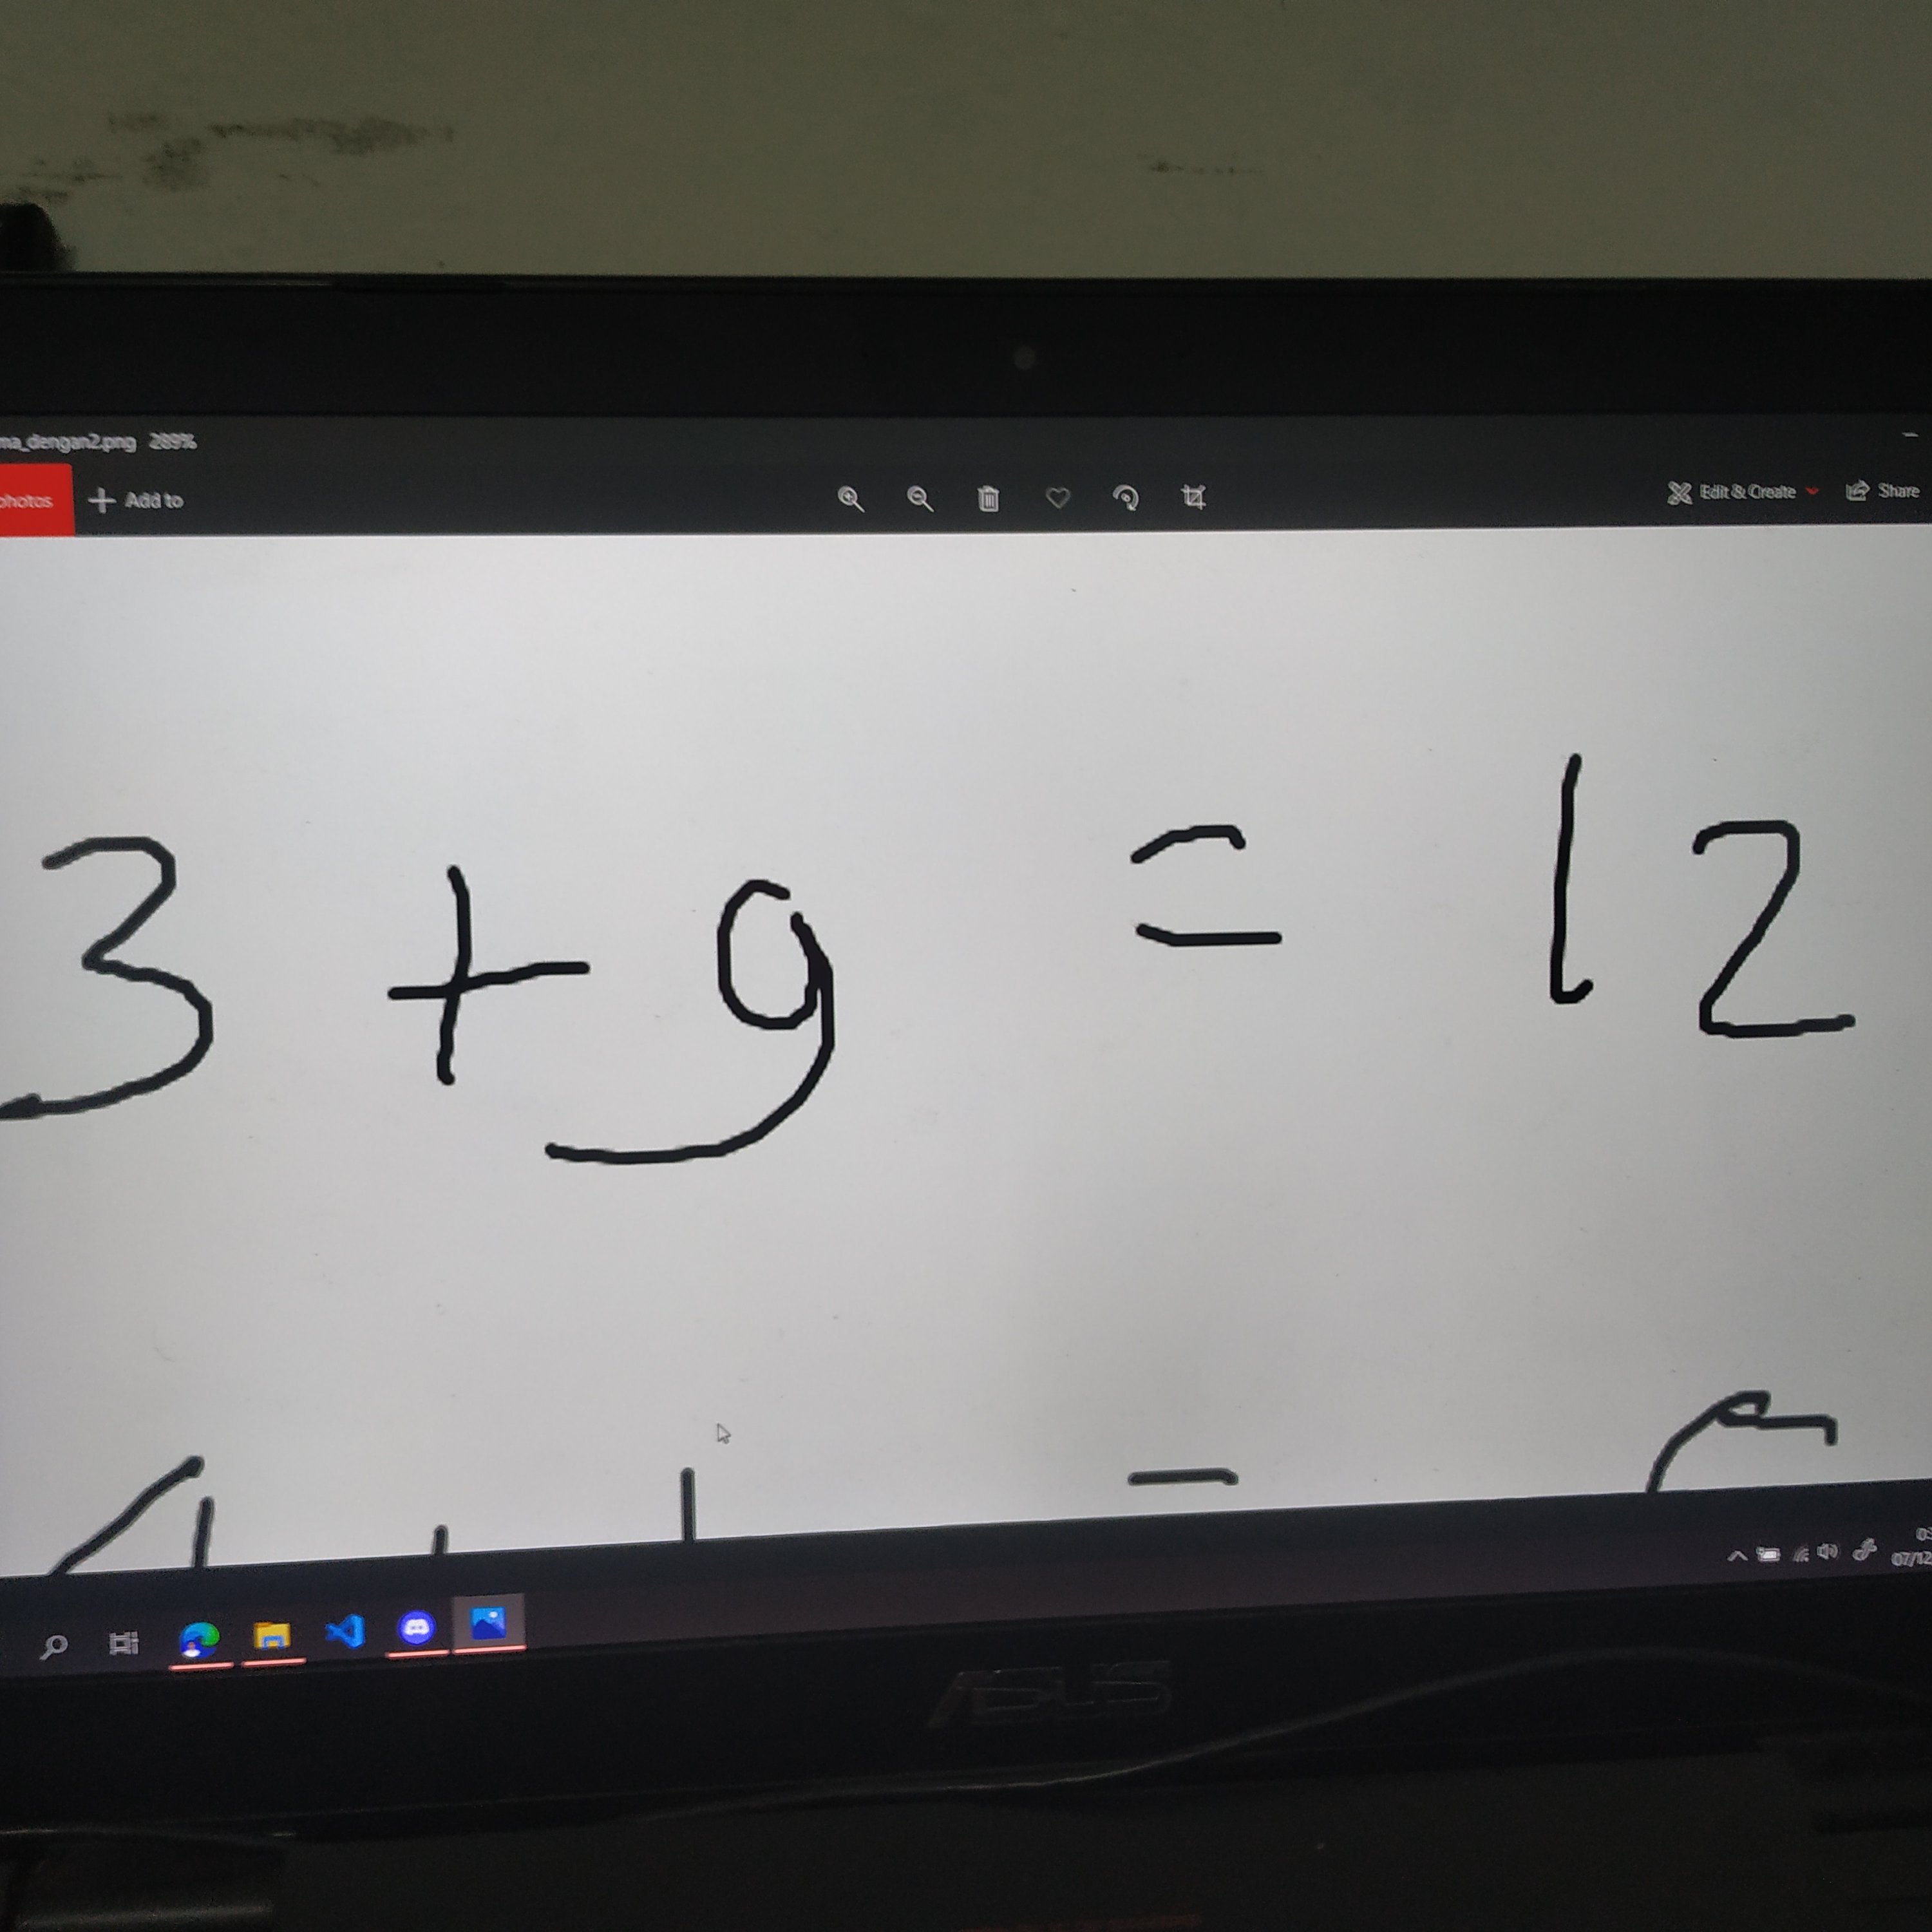 ma_dengan2.png 289%
photos Add to Edit & Create Share
3 + 9 = 12
07/12
ASUS